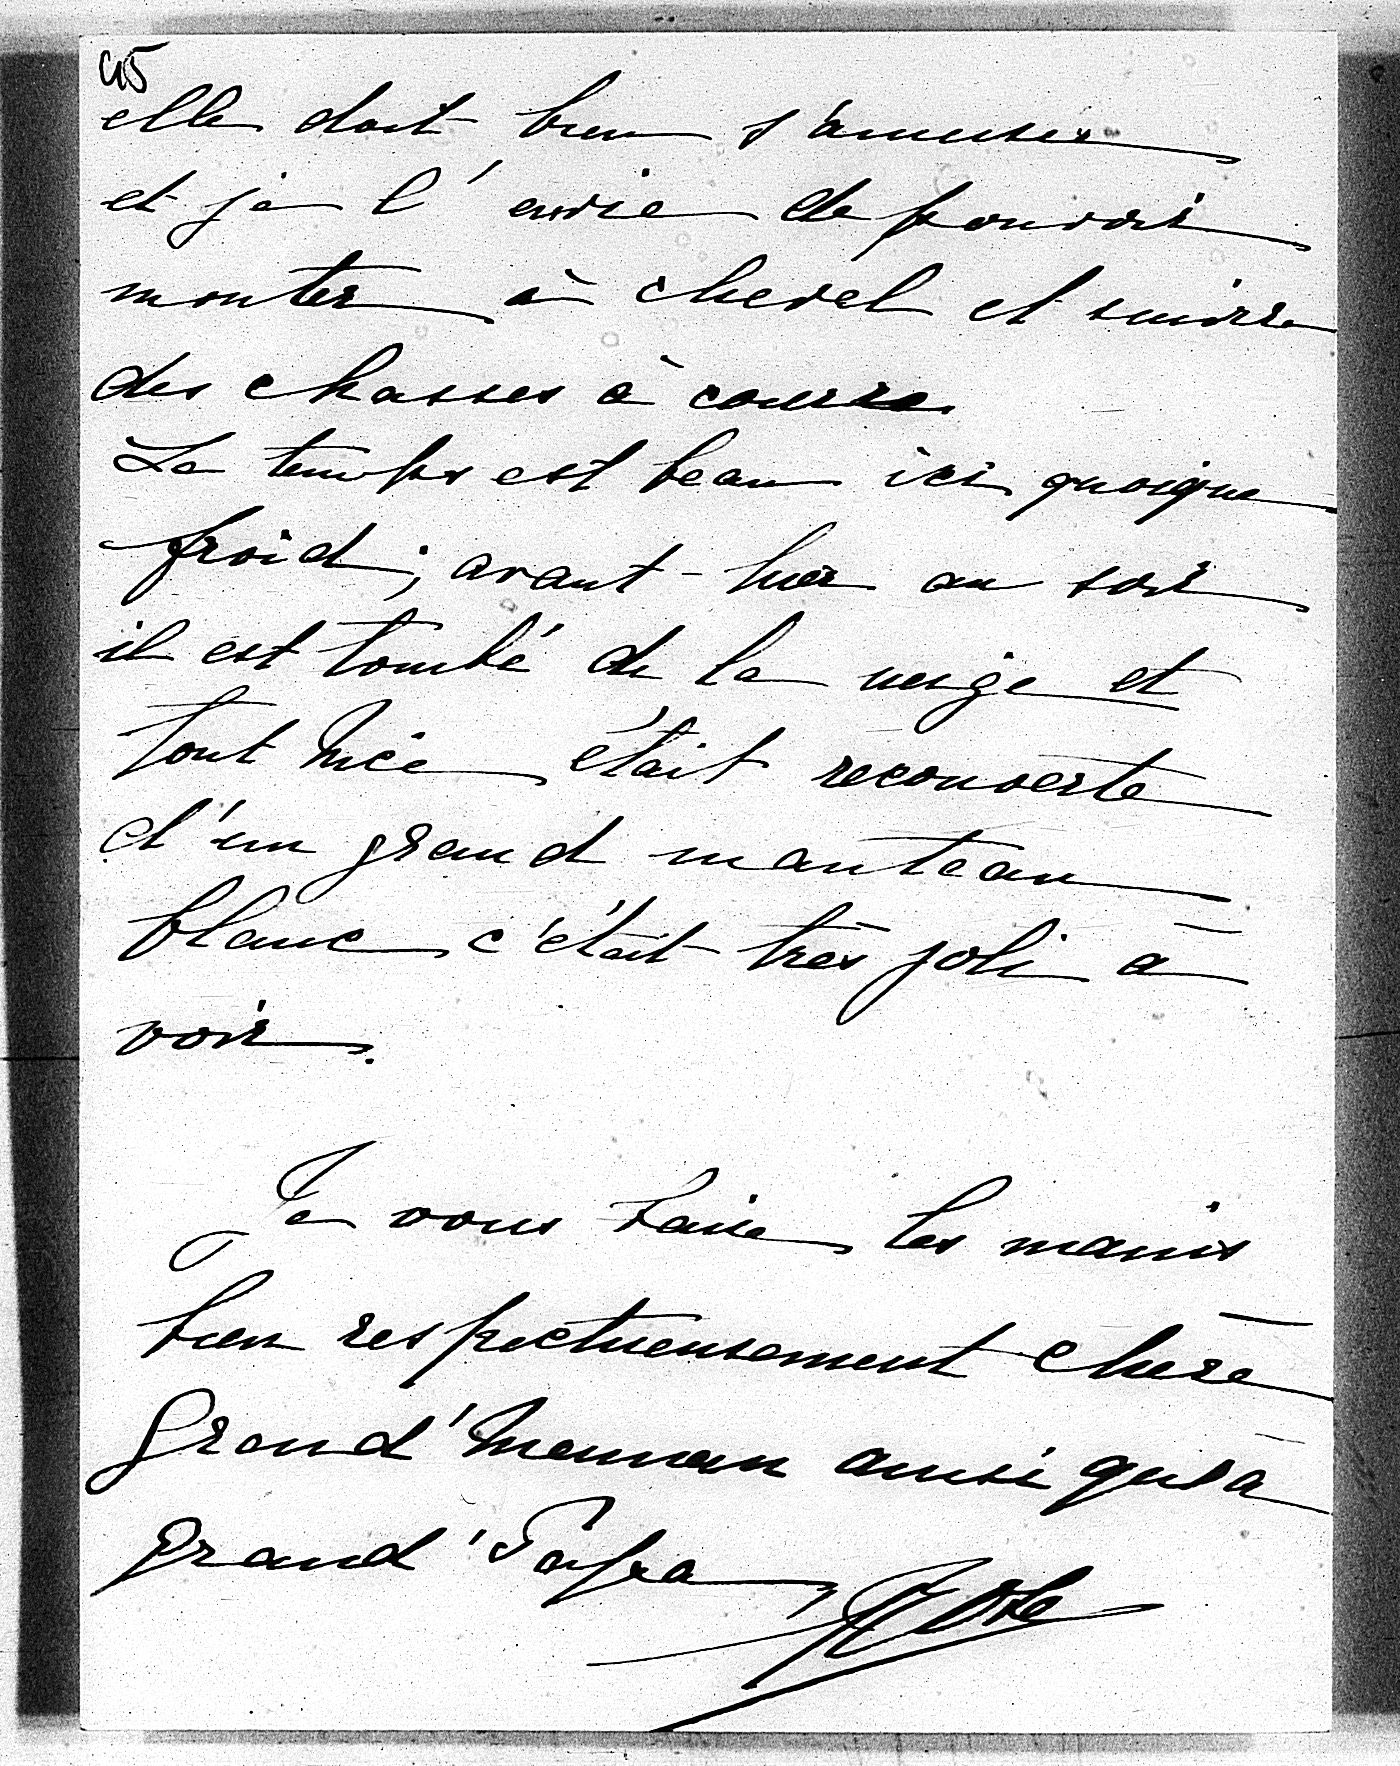 45
elle doit bien s'amuser
et je l'envie de pouvoir
monter à cheval et suivre
des chasses à courre.
Le temps est beau ici quoique
froid ; avant-hier au soir
il est tombé de la neige et
tout Nice était recouverte
d'un grand manteau
blanc c'était très joli à
voir.
Je vous baise les mains
bien respectueusement chère
Grand'Maman ainsi qu'à
Grand'Papa